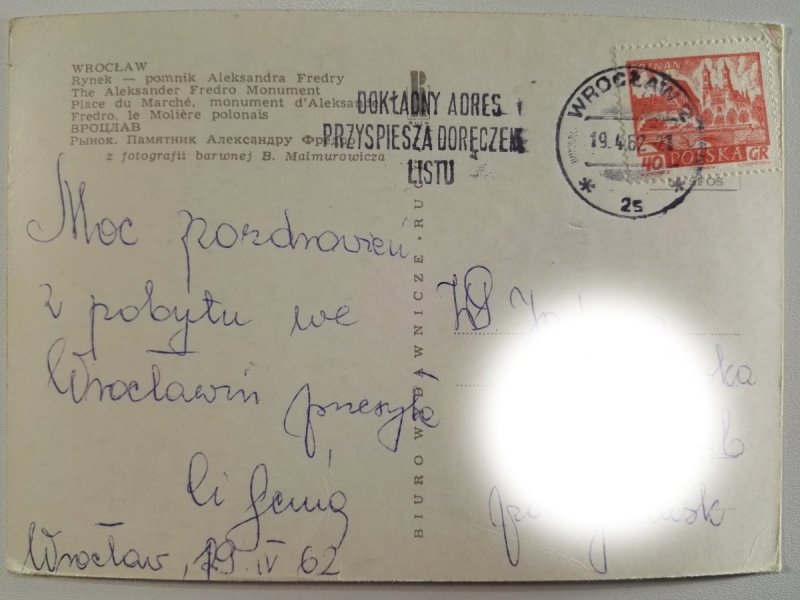 WROCŁAW
Rynek — pomnik Aleksandra Fredry
The Aleksander Fredro Monument
Place du Marché, monument d'Aleksandre
Fredro, le Molière polonais
ВРОЦЛАВ
Рынок. Памятник Александру Фредро
z fotografii barwnej B. Malmurowicza
DOKŁADNY ADRES
PRZYSPIESZA DORĘCZEN
LISTU
WROCŁAW
19.4.62
2s
POZNAŃ
40 POLSKA GR
BIURO WYDAWNICZE · RUC
Moc pozdrowień
z pobytu we
Wrocławiu przesyła
Wrocław, 19 IV 62